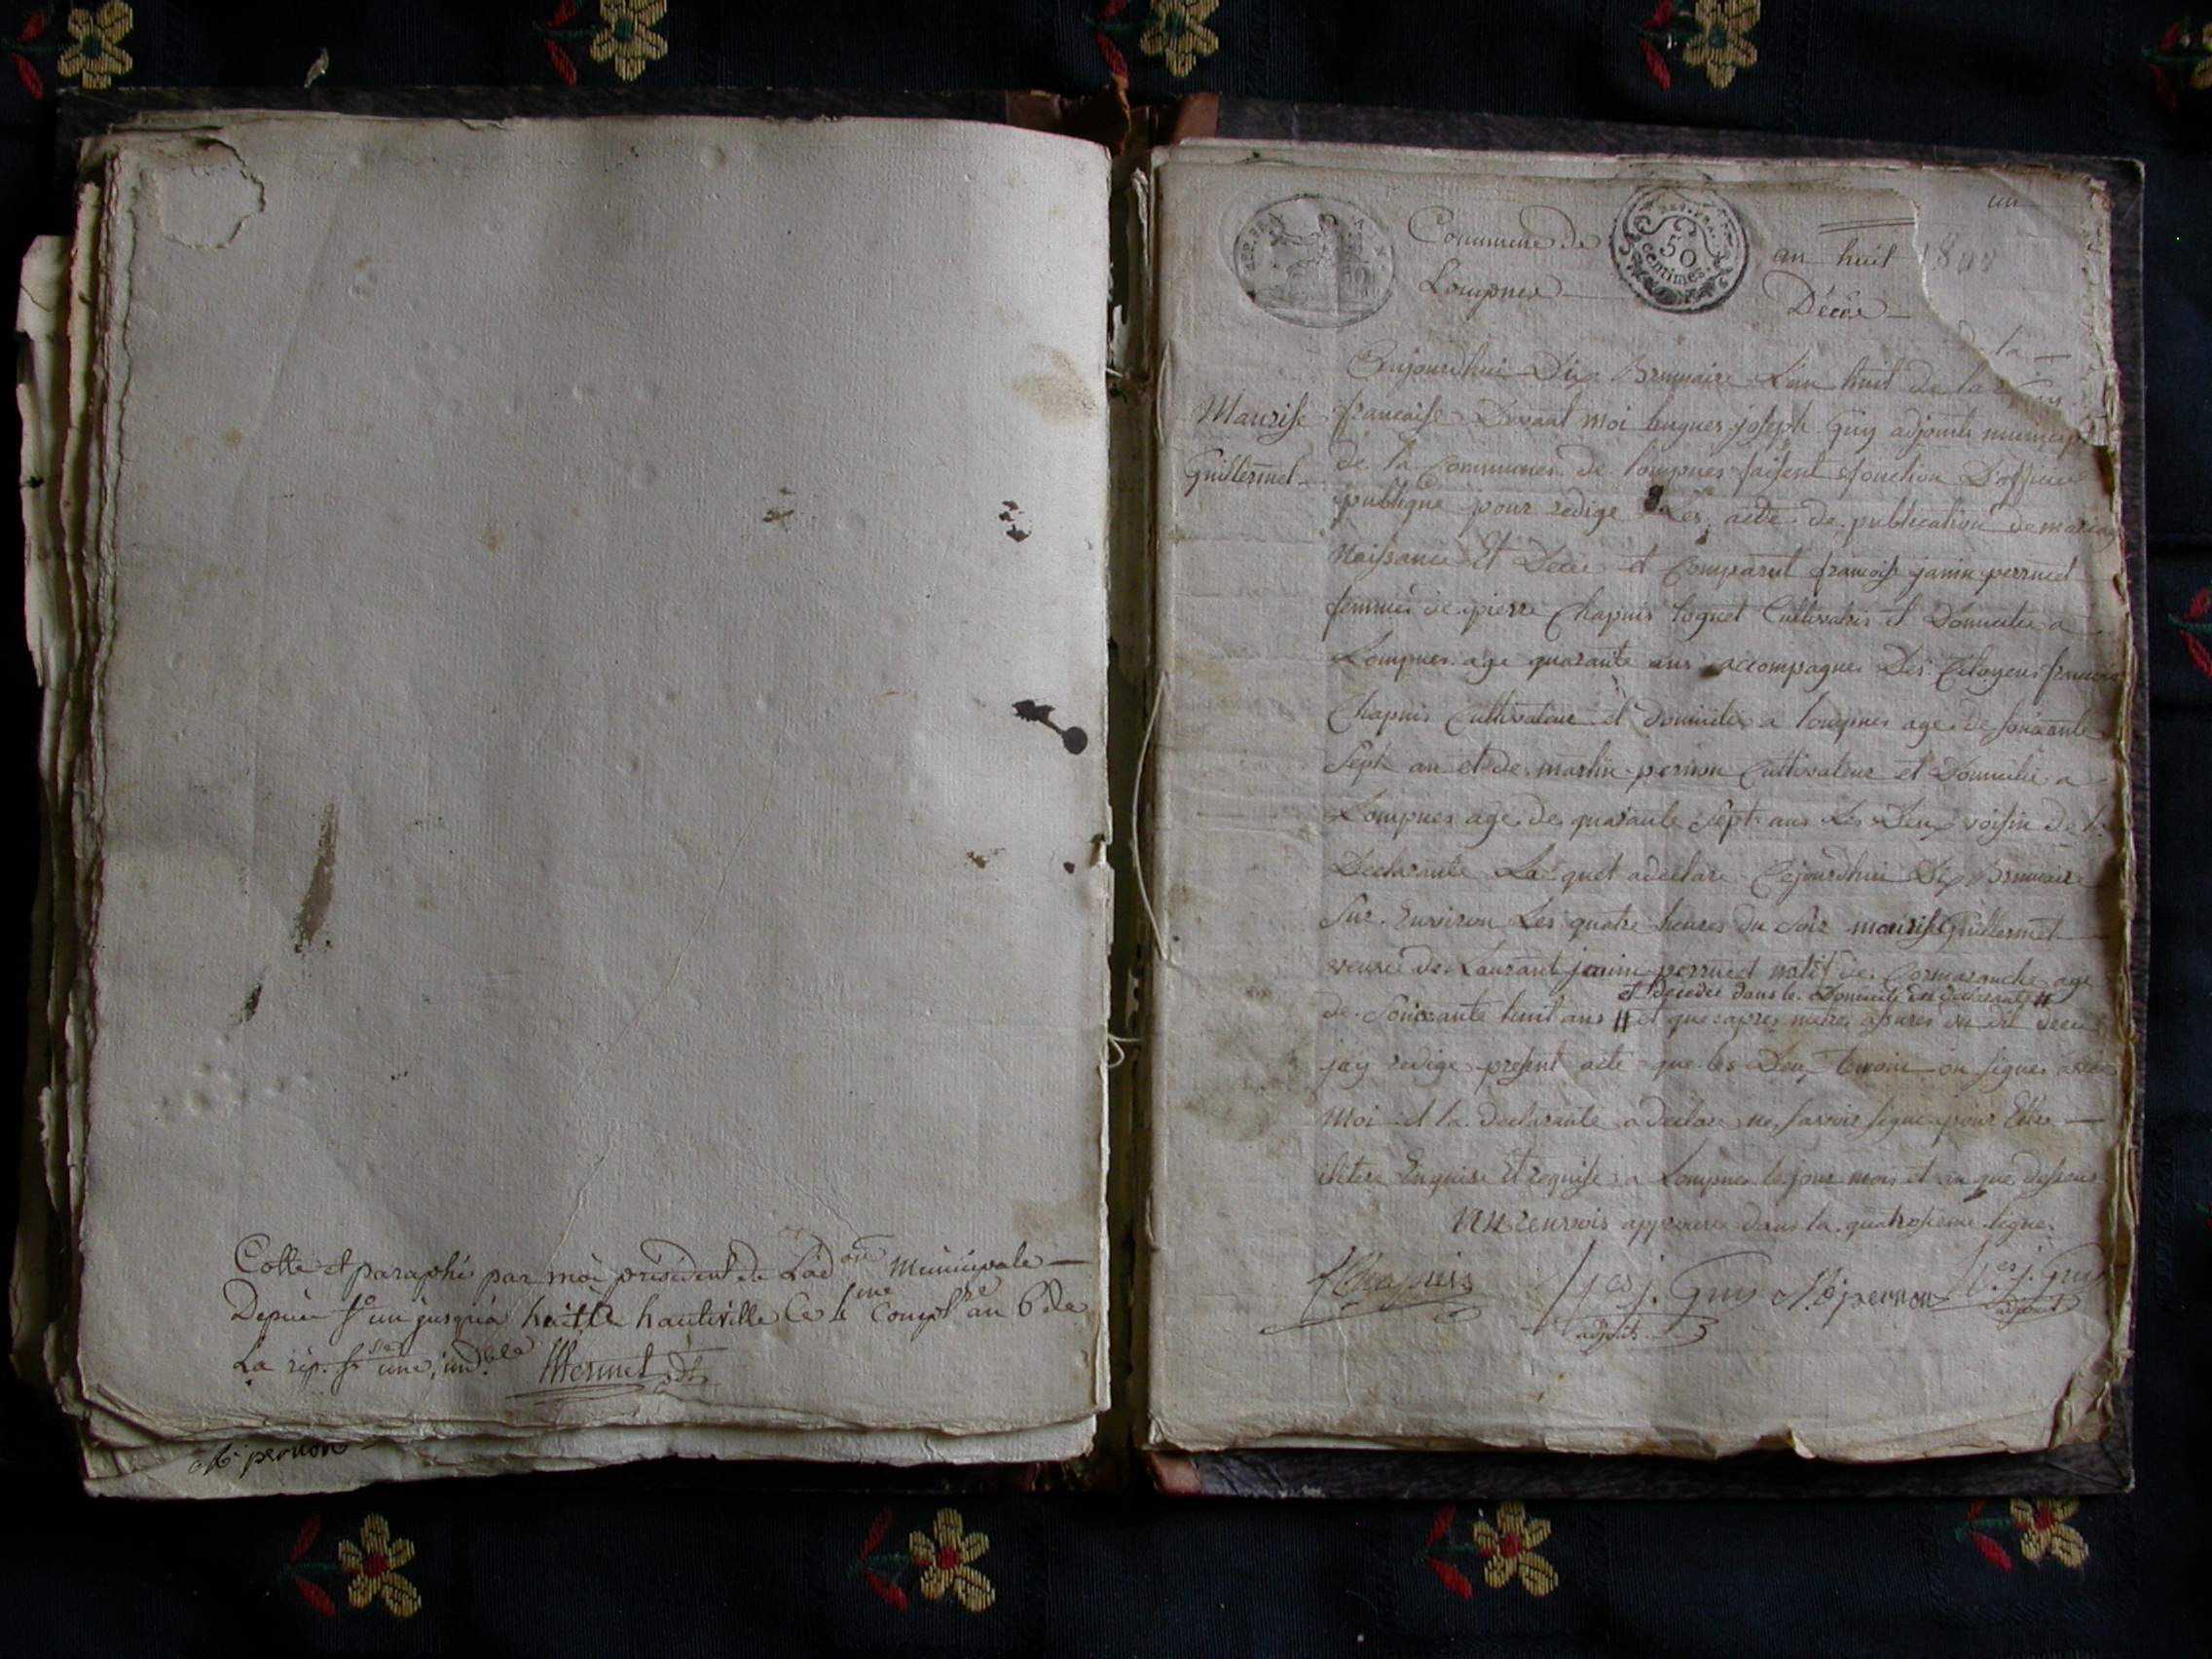 Cotté et paraphé par moi président de L'ad.on municipale —
Depuis f.o un jusqu'a huitte hauteville Ce 4me Comp.re an 6 de
La rép. f.se une, ind.ble Mermet pdt
pernon
un
Commune de
Lompnes —
REP. FRA
50
centimes.
an huit
Décè —
la —
Aujourdhui Dix Brumaire L'an huit de la
Maurise francaise Devant moi hugues joseph Guy adjoint municip
Guillermet — de la Communes de Lompnes faisent fonction D'officier
publique pour redige Les acte de publication de mariag
Naissance Et Decè et Comparut francoise janin perrued
femme de pierre Chapuis Cultivatris et Domicilie a
Lompnes age quarante ans accompagnes Des Citoyens francois
Chapuis Cultivateur et Domicilie a lompnes age de soixante
Sept an et de martin pernon Cultivateur et Domicilie a
Lompnes age de quarante Sept ans Les Deux voisin de la
Declarante La quel a declare Cejourdhui Dix Brumaire
Sur Environ Les quatre heures du Soir maurise Guillermet
veuve de Laurant janin perrued natif de Cormaranche age
et décédée dans le Domicile
de Soixante huit ans et que apres metre assures du dit decè
jay redige present acte que les Deux temoin on signes avec
Moi et la declarante a declare ne savoir signe pour Etre
iliteré Enquise Et requise a Lompnes le jour mois et an que dessus
un renvois approuve dans la quatrosieme ligne
f Chapuis h.es j. Guy M pernon h.es j. Guy
adjoint adjoint